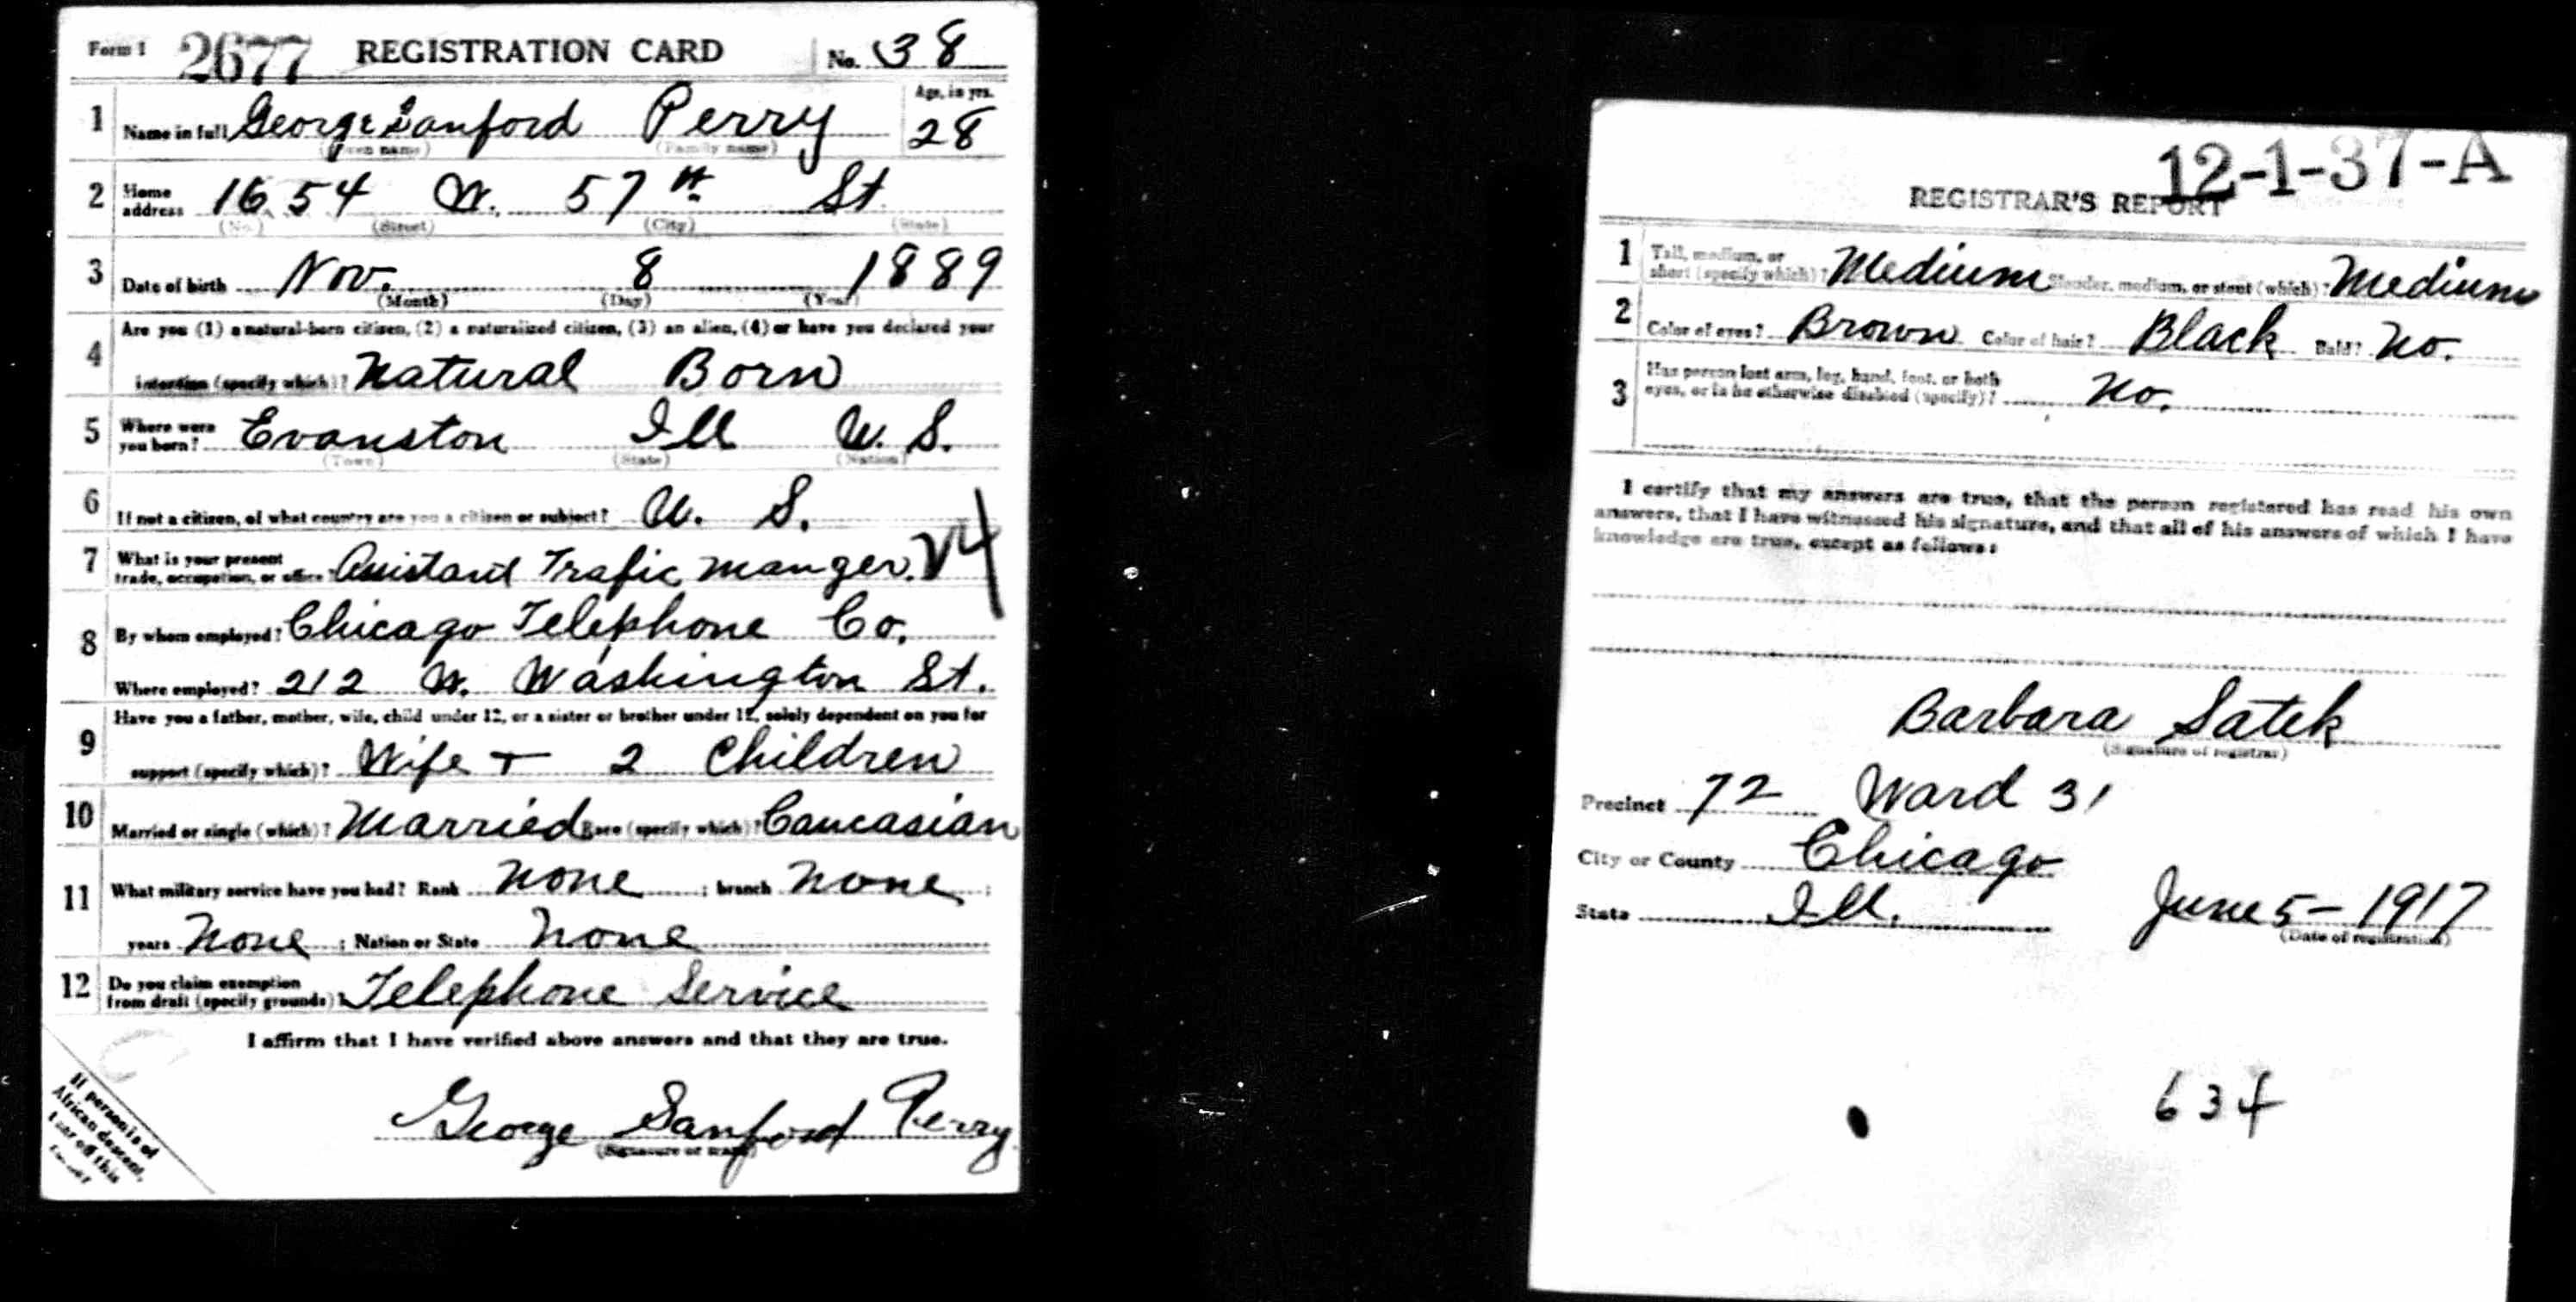 Form 1 2677 REGISTRATION CARD No. 38
1 Name in full George Sanford Perry Age, in yrs. 28
(Given name) (Family name)
2 Home address 1654 W. 57th St
(No.) (Street) (City) (State)
3 Date of birth Nov. 8 1889
(Month) (Day) (Year)
Are you (1) a natural-born citizen, (2) a naturalized citizen, (3) an alien, (4) or have you declared your
4 intention (specify which)? Natural Born
5 Where were you born? Evanston Ill U. S.
(Town) (State) (Nation)
6 If not a citizen, of what country are you a citizen or subject? U. S.
7 What is your present trade, occupation, or office? Assistant Trafic manger. V4
8 By whom employed? Chicago Telephone Co.
Where employed? 212 W. Washington St.
Have you a father, mother, wife, child under 12, or a sister or brother under 12, solely dependent on you for
9 support (specify which)? Wife + 2 Children
10 Married or single (which)? Married Race (specify which)? Caucasian
11 What military service have you had? Rank none ; branch none ;
years none ; Nation or State none
12 Do you claim exemption from draft (specify grounds)? Telephone Service
I affirm that I have verified above answers and that they are true.
George Sanford Perry
(Signature or mark)
If person is of
African descent,
tear off this
corner
12-1-37-A
REGISTRAR'S REPORT
1 Tall, medium, or short (specify which)? Medium Slender, medium, or stout (which)? Medium
2 Color of eyes? Brown Color of hair? Black Bald? No.
3 Has person lost arm, leg, hand, foot, or both eyes, or is he otherwise disabled (specify)? No.
I certify that my answers are true, that the person registered has read his own
answers, that I have witnessed his signature, and that all of his answers of which I have
knowledge are true, except as follows:
Barbara Satek
(Signature of registrar)
Precinct 72 Ward 31
City or County Chicago
State Ill. June 5-1917
(Date of registration)
634